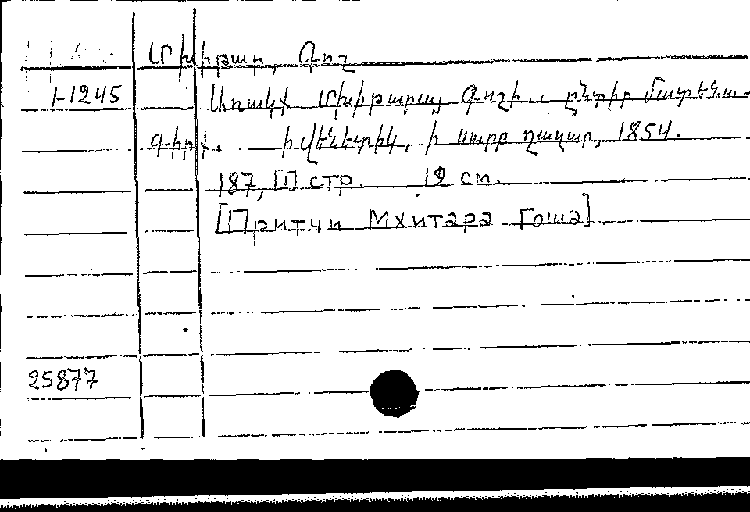 Մխիթար, Գոշ
1-1245 Առակք Մխիթարայ Գոշի.. ընտիր մատենա-
գիրք. ի վենետիկ, ի սուրբ ղազար, 1854.
187, [1] стр. 12 см.
[Притчи Мхитара Гоша]
25877